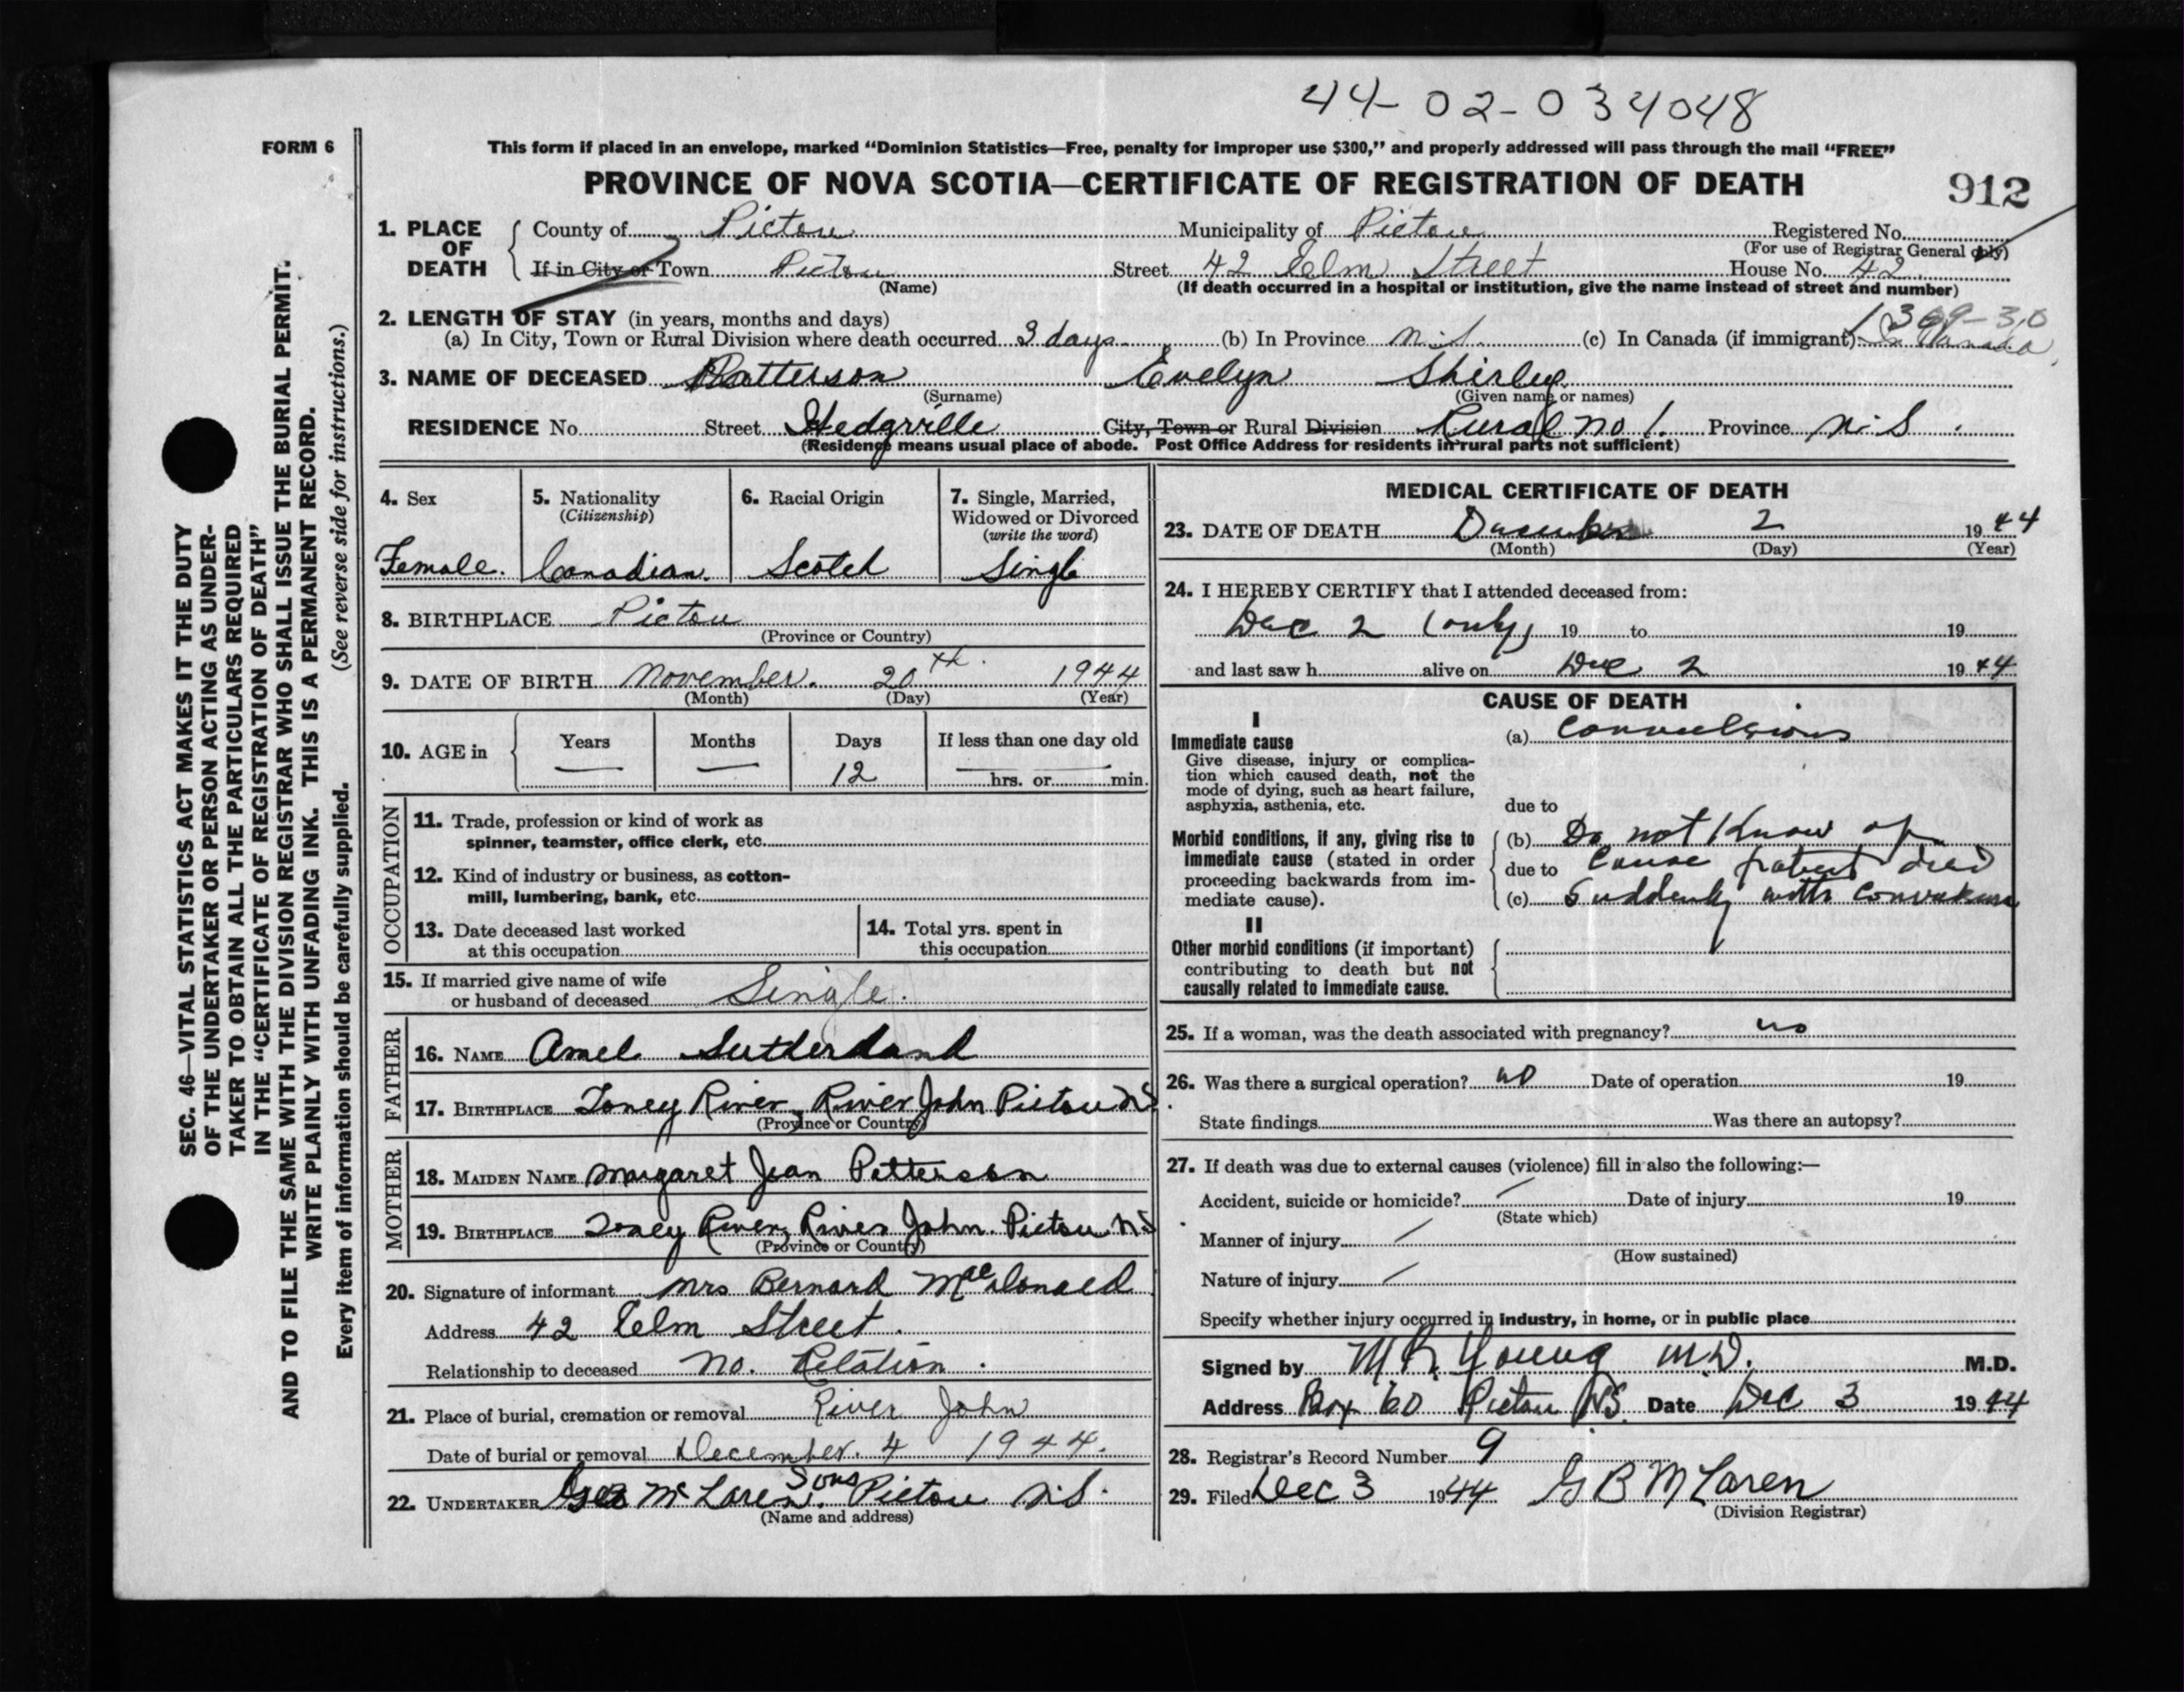 44-02-034048
FORM 6
This form if placed in an envelope, marked “Dominion Statistics—Free, penalty for improper use $300,” and properly addressed will pass through the mail “FREE”
PROVINCE OF NOVA SCOTIA—CERTIFICATE OF REGISTRATION OF DEATH
912
1. PLACE OF DEATH
County of Pictou Municipality of Pictou Registered No.
(For use of Registrar General only)
If in City or Town Pictou Street 42 Elm Street House No. 42
(Name) (If death occurred in a hospital or institution, give the name instead of street and number)
2. LENGTH OF STAY (in years, months and days)
1309-30
(a) In City, Town or Rural Division where death occurred 3 days (b) In Province N.S. (c) In Canada (if immigrant) Canada
3. NAME OF DECEASED Patterson Evelyn Shirley
(Surname) (Given name or names)
RESIDENCE No. Street Hedgville City, Town or Rural Division Rural No 1. Province N.S.
(Residence means usual place of abode. Post Office Address for residents in rural parts not sufficient)
4. Sex
Female.
5. Nationality
(Citizenship)
Canadian.
6. Racial Origin
Scotch
7. Single, Married,
Widowed or Divorced
(write the word)
Single
8. BIRTHPLACE Pictou
(Province or Country)
9. DATE OF BIRTH November. 20th. 1944
(Month) (Day) (Year)
10. AGE in
Years Months Days If less than one day old
— — 12 hrs. or min.
OCCUPATION
11. Trade, profession or kind of work as
spinner, teamster, office clerk, etc.
12. Kind of industry or business, as cotton-
mill, lumbering, bank, etc.
13. Date deceased last worked
at this occupation
14. Total yrs. spent in
this occupation
15. If married give name of wife
or husband of deceased Single.
FATHER
16. NAME Amel Sutherland
17. BIRTHPLACE Toney River, River John Pictou NS.
(Province or Country)
MOTHER
18. MAIDEN NAME Margaret Jean Patterson
19. BIRTHPLACE Toney River, River John. Pictou N.S.
(Province or Country)
20. Signature of informant Mrs Bernard MacDonald
Address 42 Elm Street.
Relationship to deceased No. Relation.
21. Place of burial, cremation or removal River John
Date of burial or removal December. 4 1944.
22. UNDERTAKER Geo McLaren Sons. Pictou N.S.
(Name and address)
MEDICAL CERTIFICATE OF DEATH
23. DATE OF DEATH December 2 1944
(Month) (Day) (Year)
24. I HEREBY CERTIFY that I attended deceased from:
Dec 2 (only) 19 to 19
and last saw h alive on Dec 2 1944
CAUSE OF DEATH
I
Immediate cause
Give disease, injury or complica-
tion which caused death, not the
mode of dying, such as heart failure,
asphyxia, asthenia, etc.
(a) Convulsions
due to
Morbid conditions, if any, giving rise to
immediate cause (stated in order
proceeding backwards from im-
mediate cause).
(b) Do not know of
due to cause patient died
(c) Suddenly with convulsions
II
Other morbid conditions (if important)
contributing to death but not
causally related to immediate cause.
25. If a woman, was the death associated with pregnancy? no
26. Was there a surgical operation? no Date of operation 19
State findings Was there an autopsy?
27. If death was due to external causes (violence) fill in also the following:—
Accident, suicide or homicide? Date of injury 19
(State which)
Manner of injury
(How sustained)
Nature of injury
Specify whether injury occurred in industry, in home, or in public place
Signed by M R Young M.D. M.D.
Address Box 60 Pictou N.S. Date Dec 3 1944
28. Registrar's Record Number 9
29. Filed Dec 3 1944 G B McLaren
(Division Registrar)
SEC. 46—VITAL STATISTICS ACT MAKES IT THE DUTY
OF THE UNDERTAKER OR PERSON ACTING AS UNDER-
TAKER TO OBTAIN ALL THE PARTICULARS REQUIRED
IN THE “CERTIFICATE OF REGISTRATION OF DEATH”
AND TO FILE THE SAME WITH THE DIVISION REGISTRAR WHO SHALL ISSUE THE BURIAL PERMIT.
WRITE PLAINLY WITH UNFADING INK. THIS IS A PERMANENT RECORD.
Every item of information should be carefully supplied. (See reverse side for instructions.)